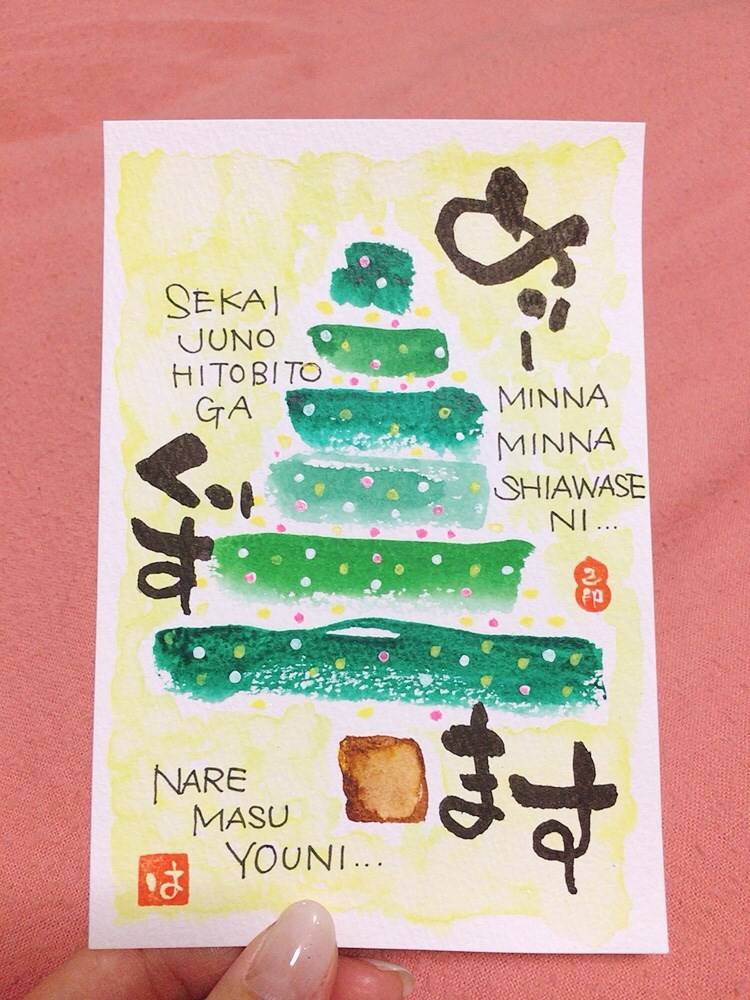 めりー
くり
す
ます
SEKAI
JUNO
HITOBITO
GA
MINNA
MINNA
SHIAWASE
NI...
NARE
MASU
YOUNI...
は